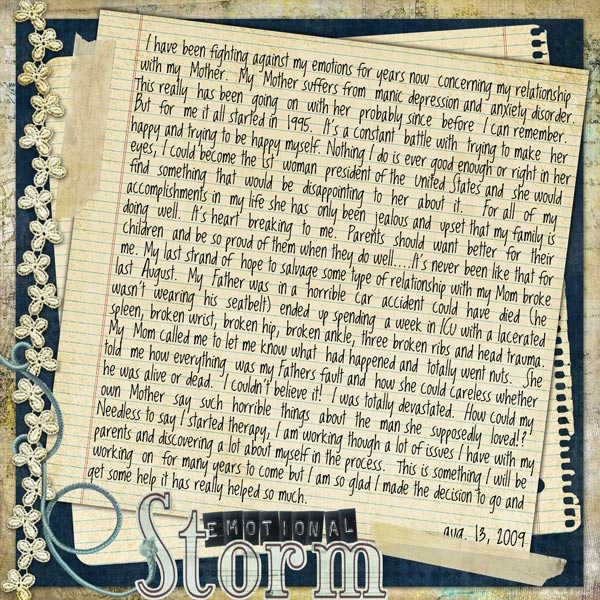 I have been fighting against my emotions for years now concerning my relationship
with my Mother. My Mother suffers from manic depression and anxiety disorder.
This really has been going on with her probably since before I can remember.
But for me it all started in 1995. It's a constant battle with trying to make her
happy and trying to be happy myself. Nothing I do is ever good enough or right in her
eyes, I could become the 1st woman president of the United States and she would
find something that would be disappointing to her about it. For all of my
accomplishments in my life she has only been jealous and upset that my family is
doing well. It's heart breaking to me. Parents should want better for their
children and be so proud of them when they do well.....It's never been like that for
me. My last strand of hope to salvage some type of relationship with my Mom broke
last August. My Father was in a horrible car accident could have died (he
wasn't wearing his seatbelt) ended up spending a week in ICU with a lacerated
spleen, broken wrist, broken hip, broken ankle, three broken ribs and head trauma.
My Mom called me to let me know what had happened and totally went nuts. She
told me how everything was my Fathers fault and how she could careless whether
he was alive or dead. I couldn't believe it! I was totally devastated. How could my
own Mother say such horrible things about the man she supposedly loved!?
Needless to say I started therapy, I am working though a lot of issues I have with my
parents and discovering a lot about myself in the process. This is something I will be
working on for many years to come but I am so glad I made the decision to go and
get some help it has really helped so much.
aug. 13, 2009
EMOTIONAL
Storm